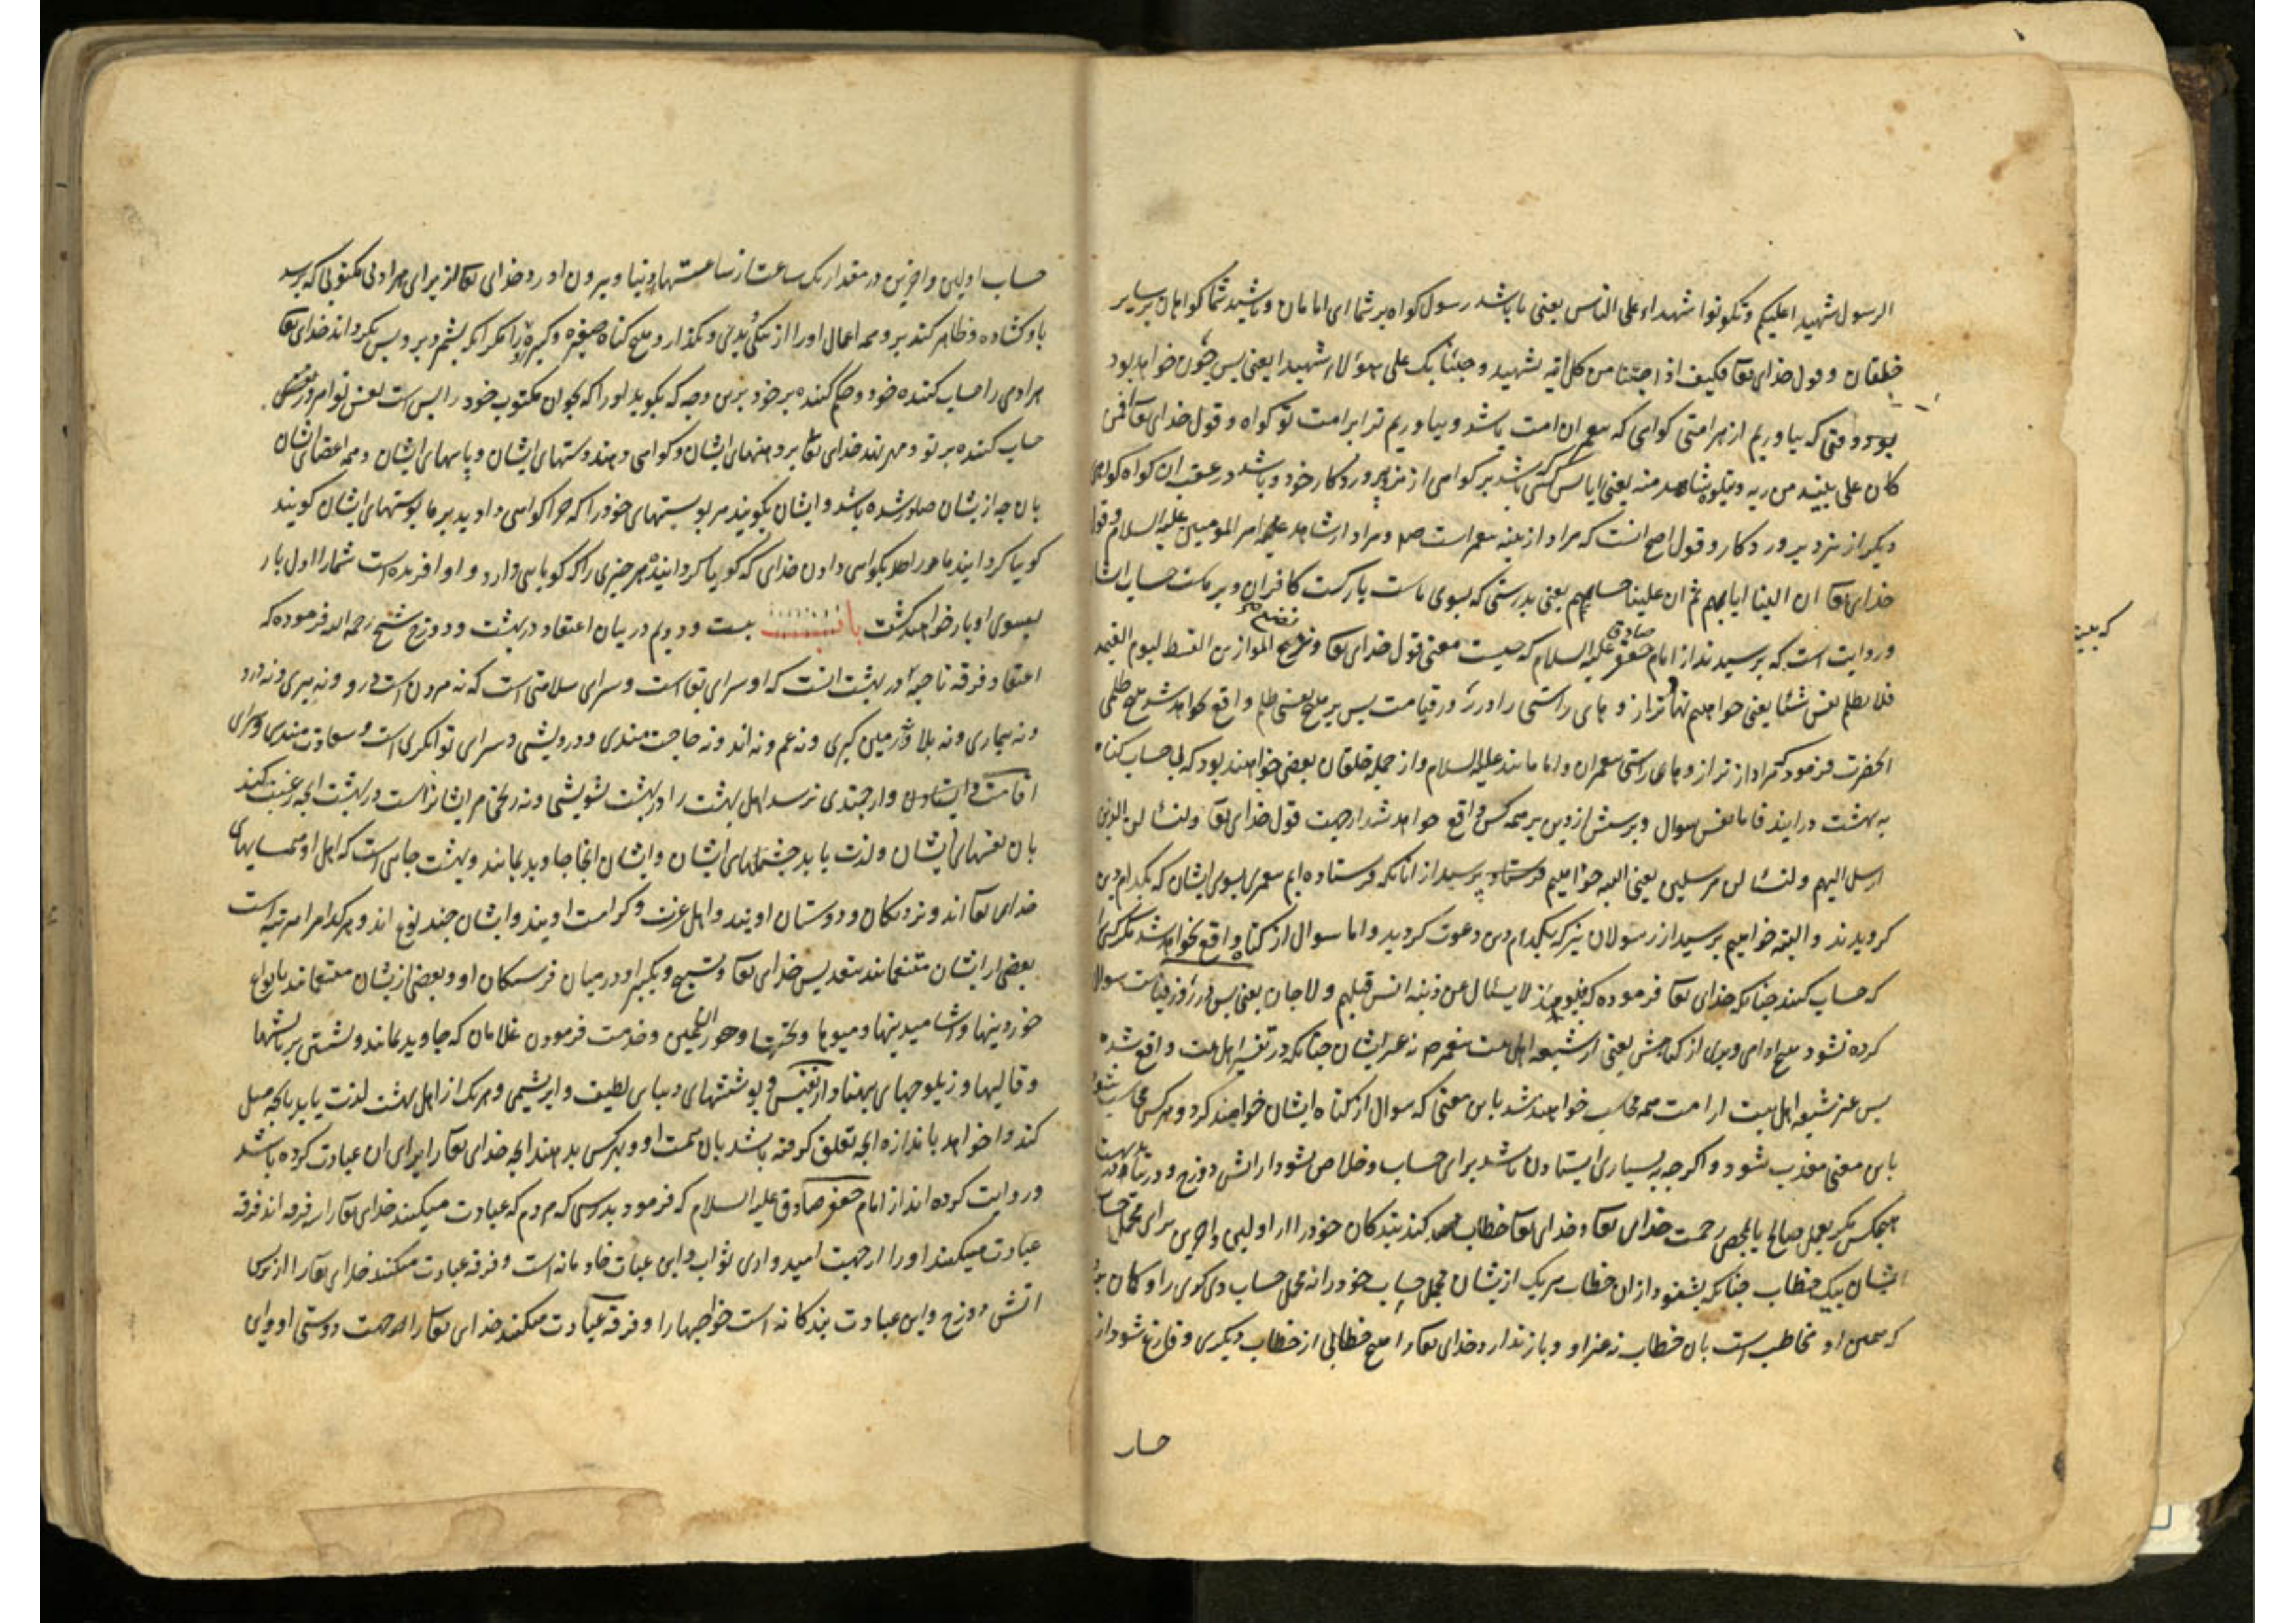 الرسول شهیدا علیکم و تکونوا شهداء علی الناس یعنی تا باشد رسول کواه بر شما ای امامان و باشید شما کواهان بر سایر
خلقان و قول خدای تعا فکیف اذا جئنا من کل امة بشهید و جئنا بک علی هؤلاء شهیدا یعنی پس چون خواهد بود
بود وقتی که بیاوریم از هر امتی کواهی که پیغمبر ان امت باشد و بیاوریم ترا بر امت تو کواه و قول خدای تعا افمن
کان علی بینة من ربه و یتلوه شاهد منه یعنی ایا پس کسی که باشد بر کواهی از نزد پروردکار خود و باشد در عقب ان کواه کواهی
دیکر از نزد پروردکار و قول اصح انست که مراد از بینه پیغمبر است صلم و مراد از شاهد امیر المومنین علیه السلام و قول
خدای تعا ان الینا ایابهم ثم ان علینا حسابهم یعنی بدرستی که بسوی ماست بازکشت کافران و بر ماست حساب ایشان
و روایت است که پرسیدند از امام جعفر صادق علیه السلام که چیست معنی قول خدای تعا و نضع الموازین القسط لیوم القیمه
فلا تظلم نفس شیئا یعنی خواهیم نهاد ترازوهای راستی را در روز قیامت پس بر هیچ نفسی ظلم واقع نخواهد شد هیچ ظلمی
انحضرت فرمود که مراد از ترازوهای راستی پیغمبران و امامانند علیه السلام و از جمله خلقان بعضی خواهند بود که بی حساب کناه
به بهشت درایند فاما نفس سوال و پرسش از دین بر همه کس واقع خواهد شد از جهت قول خدای تعا و لنسئلن الذین
ارسل الیهم و لنسئلن المرسلین یعنی البته خواهیم پرسید از انانکه فرستاده ایم پیغمبری بسوی ایشان که بکدام دین
کرویدند و البته خواهیم پرسید از رسولان نیز که بکدام دین دعوت کردید و اما سوال از کناه واقع نخواهد شد مکر کسی را
که حساب کنند چنانکه خدای تعا فرموده که فیومئذ لا یسئل عن ذنبه انس قبلهم و لا جان یعنی پس در روز قیامت سوال
کرده نشود هیچ ادمی و پری از کناهش یعنی از شیعه اهل بیت پیغمبر صلم نه غیر ایشان چنانکه در تفسیر اهل بیت واقع شده
پس غیر شیعه اهل بیت از امت همه محاسب خواهند شد باین معنی که سوال از کناه ایشان خواهند کرد و هر کس محاسب شود
باین معنی معذب شود و اکرچه به بسیاری ایستادن باشد برای حساب و خلاص نشود از اتش دوزخ و در نیاید به بهشت
هیچکس مکر بعمل صالح یا بمحض رحمت خدای تعا و خدای تعا خطاب کند بندکان خود را از اولین و اخرین برای مجمل حساب
ایشان بیک خطاب چنانکه بشنود از ان خطاب هر یک از ایشان مجمل حساب خود را نه مجمل حساب دیکری را و کان برد
که همین او مخاطب است بان خطاب نه غیر او و باز ندارد خدای تعا را هیچ خطابی از خطاب دیکری و فارغ شود از
حساب
حساب اولین و اخرین در مقدار یک ساعت از ساعتهای دنیا و بیرون اورد خدای تعا از برای هر ادمی مکتوبی که برسد
باو کشاده و ظاهر کند برو همه اعمال او را از نیکی و بدی و نکذارد هیچ کناه صغیره و کبیره او را مکر انکه بشمرد برو پس بکرداند خدای تعا
هر ادمی را حساب کننده خود و حکم کننده بر خود برین وجه که بکوید او را که بخوان مکتوب خود را بس است نفس تو امروز
حساب کننده بر تو و مهر نهد خدای تعا بر دهنهای ایشان و کواهی دهند دستهای ایشان و پایهای ایشان و همه اعضای ایشان
بان چه از ایشان صادر شده باشد و ایشان بکویند مر پوستهای خود را که چرا کواهی دادید بر ما پوستهای ایشان کویند
کویا کردانید ما را بکواهی دادن خدای که کویا کرداننده هر چیزی را که کویاهی دارد و او افریده است شما را اول بار
بسوی او باز خواهید کشت باب بیست و دویم در بیان اعتقاد در بهشت و دوزخ شیخ رحمه الله فرموده که
اعتقاد فرقه ناجیه در بهشت انست که او سرای بقاست و سرای سلامتی است که نه مردن است درو و نه پیری و نه درد
و نه بیماری و نه بلا و نه زمین کیری و نه غم و نه اندوه حاجت مندی و درویشی و سرای توانکری است و سعادت مندی و سرای
اقامت و ایستادن و ارجمندی نرسد اهل بهشت را در بهشت تشویشی و نه رنجی مر ایشانراست در بهشت انچه رغبت کند
بان نفسهای ایشان و لذت یابد چشمهای ایشان و ایشان انجا جاوید بمانند و بهشت جایی است که اهل او همسایهای
خدای تعا اند و نزدیکان و دوستان اویند و اهل عزت و کرامت اویند و ایشان چند نوع اند و هر کدام را مرتبه است
بعضی از ایشان متنعمانند بتقدیس خدای تعا و تسبیح و تکبیر او در میان فرشتکان او و بعضی از ایشان متنعمانند بانواع
خوردنیها و اشامیدنیها و میوها و تختها و حور العین و خدمت فرمودن غلامان که جاوید بمانند و نشستن بر بالشها
و قالیها و زیلوچهای پهناور نفیس و پوششهای دیبای لطیف و ابریشمی و هر یک از اهل بهشت لذت یابد بانچه میل
کند و خواهد باندازه انچه تعلق کرفته باشد بان همت او و بهر کس بدهند انچه خدای تعا را برای ان عبادت کرده باشد
و روایت کرده اند از امام جعفر صادق علیه السلام که فرمود بدرستی که مردم که عبادت میکنند خدای تعا را سه فرقه اند فرقه
عبادت میکنند او را از جهت امیدواری ثواب و این عبادت خادمانه است و فرقه عبادت میکنند خدای تعا را از ترس
اتش دوزخ و این عبادت بندکانه است خواجهها را و فرقه عبادت میکنند خدای تعا را از جهت دوستی او و این